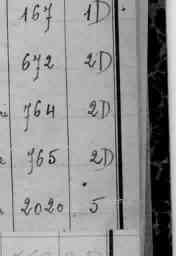 167 1D
672 2D
764 2D
765 2D
2020 5